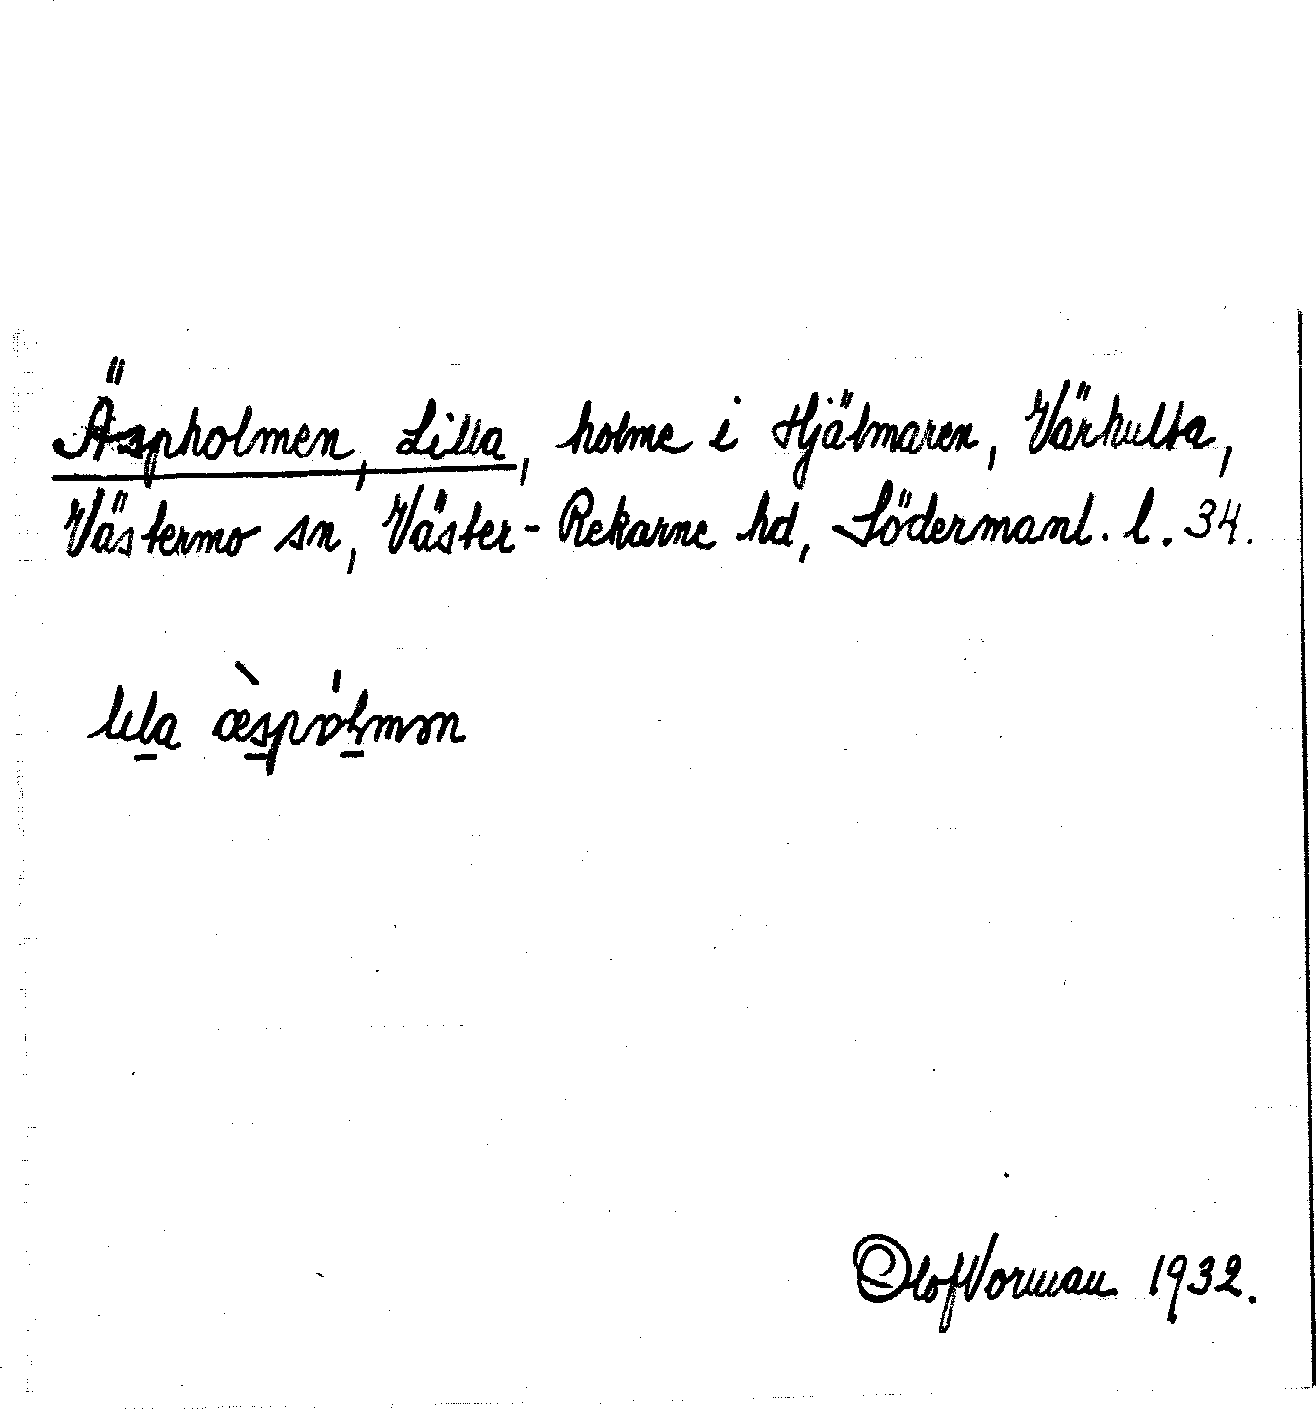 Äspholmen, Lilla, holme i Hjälmaren, Värhulta,
Västermo sn, Väster-Rekarne hd, Södermanl. l. 34.
lıla æ̀spɷ́lmən
Olof Vorman 1932.